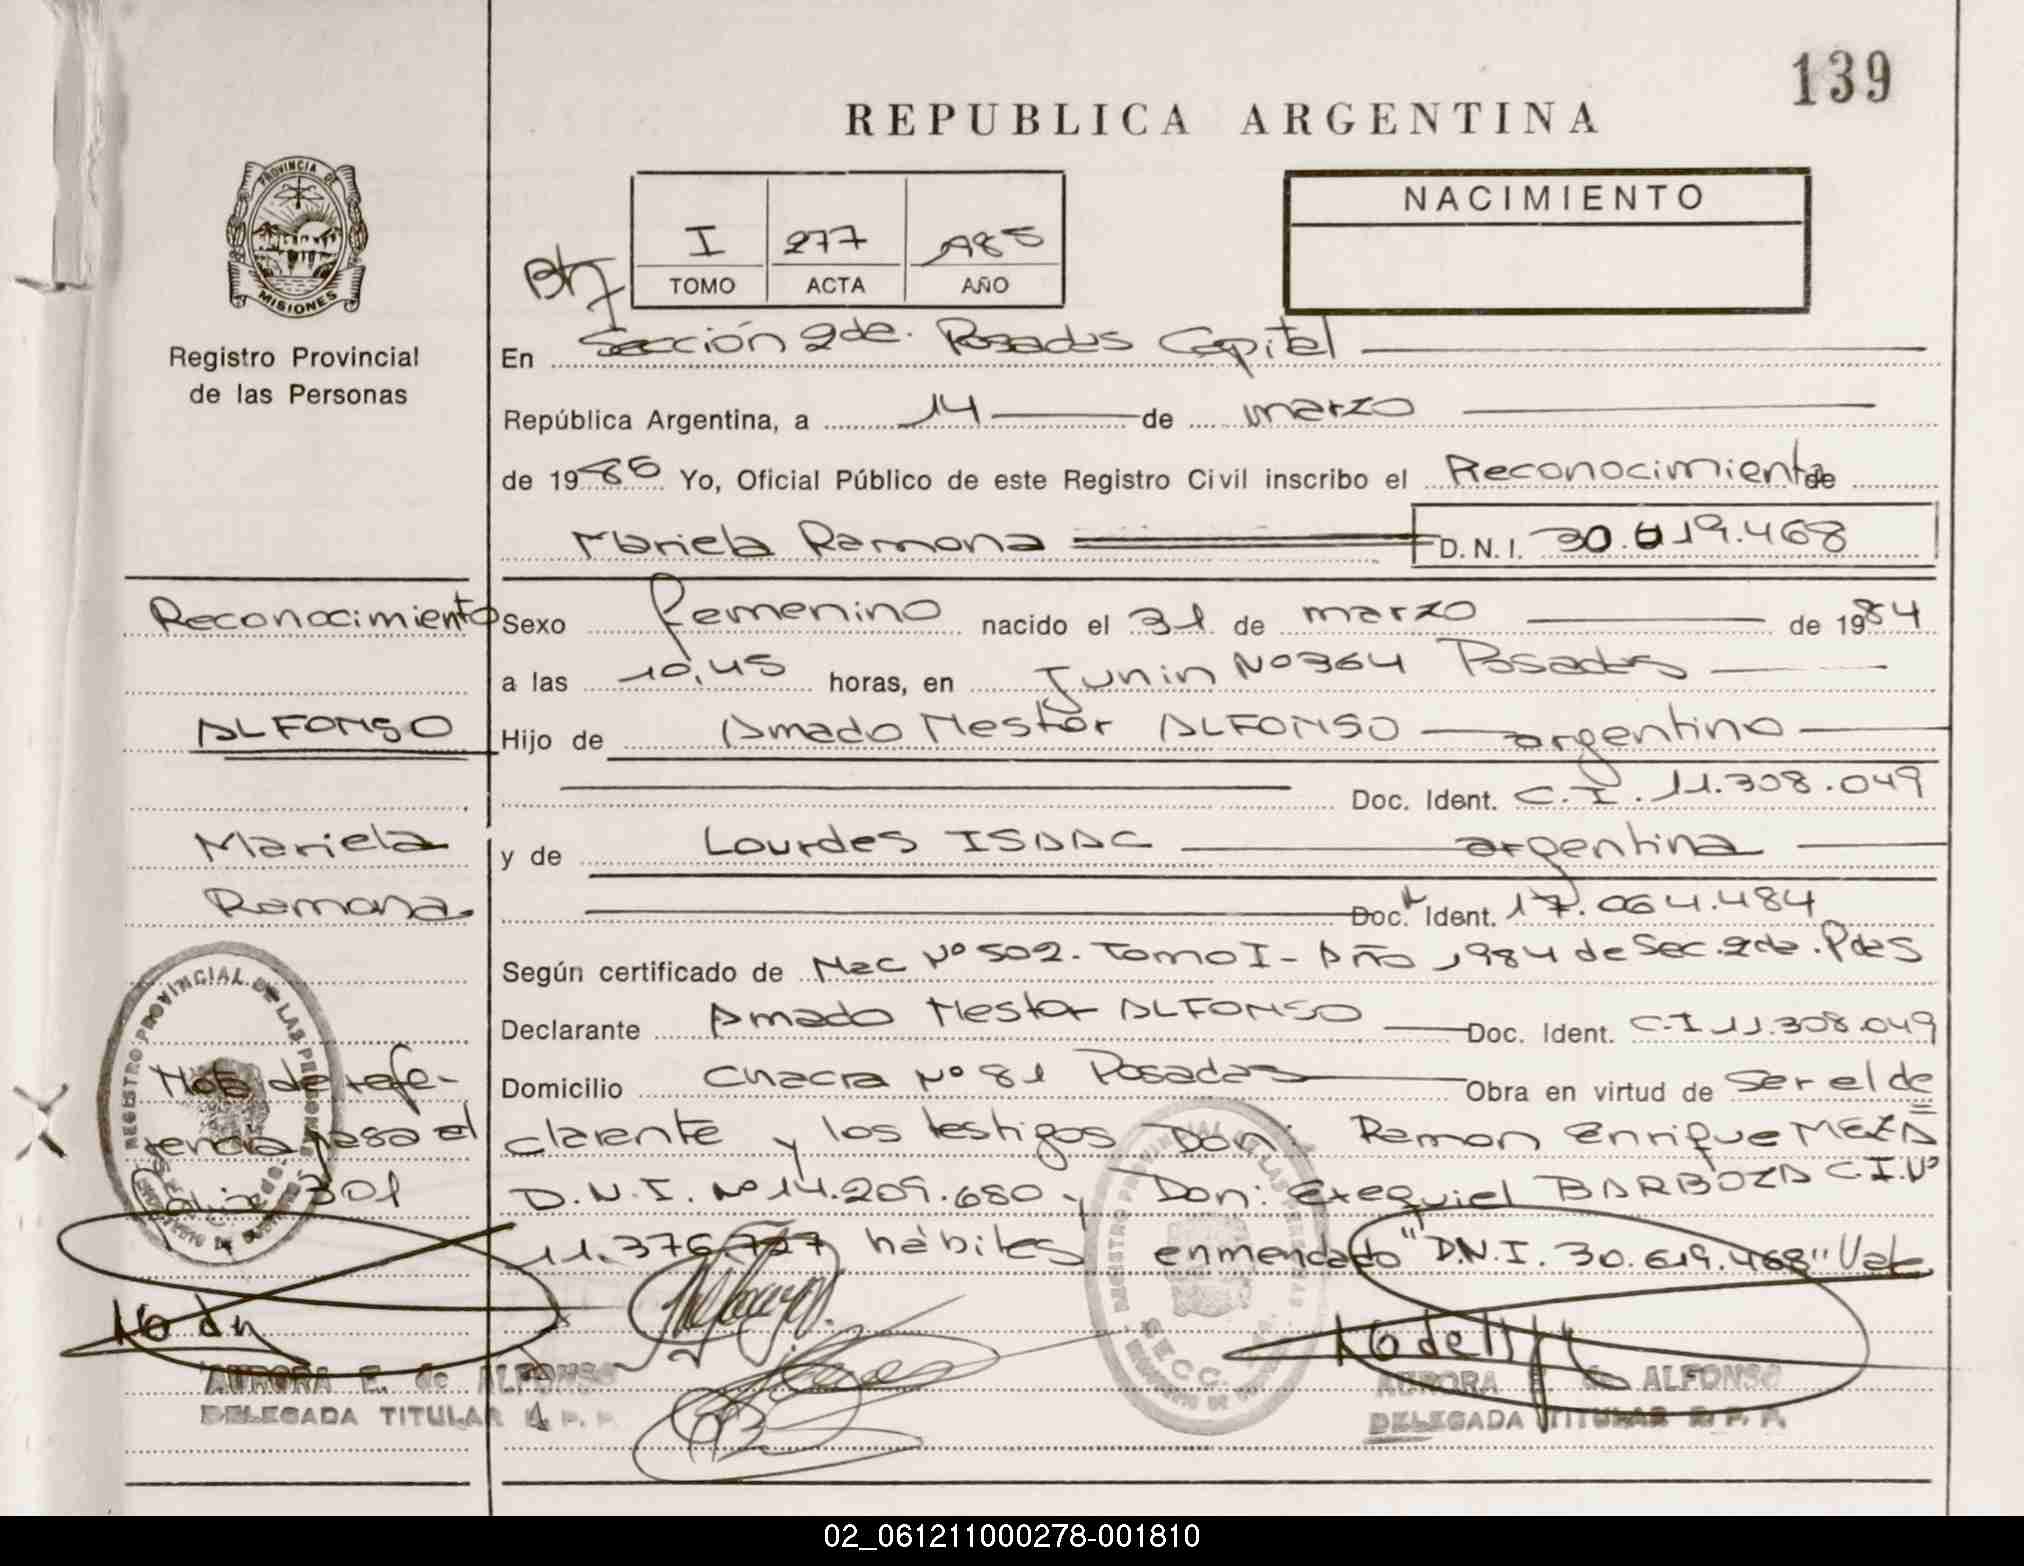 139
REPUBLICA ARGENTINA
PROVINCIA DE
MISIONES
Registro Provincial
de las Personas
I 277 1985
TOMO ACTA AÑO
NACIMIENTO
En Sección 2da. Posadas Capital
República Argentina, a 14 de marzo
de 1985 Yo, Oficial Público de este Registro Civil inscribo el Reconocimiento de
Mariela Ramona D.N.I. 30.619.468
Reconocimiento
ALFONSO
Mariela
Ramona
Sexo femenino nacido el 31 de marzo de 1984
a las 10,45 horas, en Junin Nº 364 Posadas
Hijo de Amado Nestor ALFONSO argentino
Doc. Ident. C.I. 11.308.049
y de Lourdes ISAAC argentina
Doc. Ident. 17.064.484
Según certificado de Nac Nº 502. Tomo I - Año 1984 de Sec. 2da. Pdas
Declarante Amado Nestor ALFONSO Doc. Ident. C.I 11.308.049
Domicilio Chacra Nº 81 Posadas Obra en virtud de Ser el de
clarante y los testigos Don: Ramon Enrique MEZA
D.N.I. Nº 14.209.680 y Don: Exequiel BARBOZA C.I. Nº
11.376.727 hábiles enmendado "D.N.I. 30.619.468" Vale
Nota de refe-
rencia pasa al
folio 301
REGISTRO PROVINCIAL DE LAS PERSONAS
AURORA E. de ALFONSO
DELEGADA TITULAR R. P. P.
REGISTRO PROVINCIAL DE LAS PERSONAS
SECC.
AURORA E. de ALFONSO
DELEGADA TITULAR R. P. P.
02_061211000278-001810